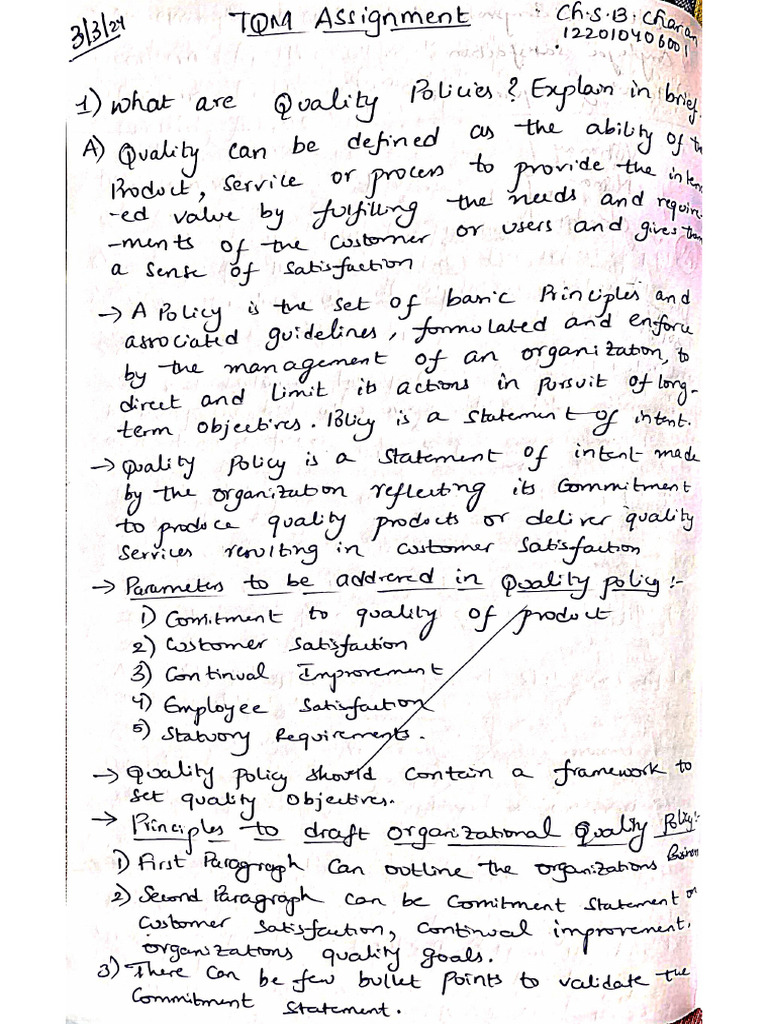 3/3/24
TQM Assignment
Ch.S.B. Charan
122010406001
1) What are Quality Policies? Explain in brief.
A) Quality can be defined as the ability of the
Product, Service or process to provide the inten
-ed value by fulfilling the needs and require-
-ments of the customer or users and gives them
a sense of satisfaction
→ A Policy is the set of basic Principles and
associated guidelines, formulated and enforce
by the management of an organization, to
direct and limit its actions in pursuit of long-
term objectives. Policy is a statement of intent.
→ Quality policy is a statement of intent made
by the organization reflecting its commitment
to produce quality products or deliver quality
services resulting in customer satisfaction
→ Parameters to be addressed in Quality policy :-
1) Comitment to quality of product
2) Customer Satisfaction
3) Continual Improvement
4) Employee Satisfaction
5) Statuory Requirements.
→ Quality policy should contain a framework to
set quality objectives.
→ Principles to draft organizational Quality Policy:-
1) First Paragraph can outline the organizations
2) Second Paragraph can be Comitment statement on
customer satisfaction, continual improvement,
organizations quality goals.
3) There can be few bullet points to validate the
Commitment Statement.